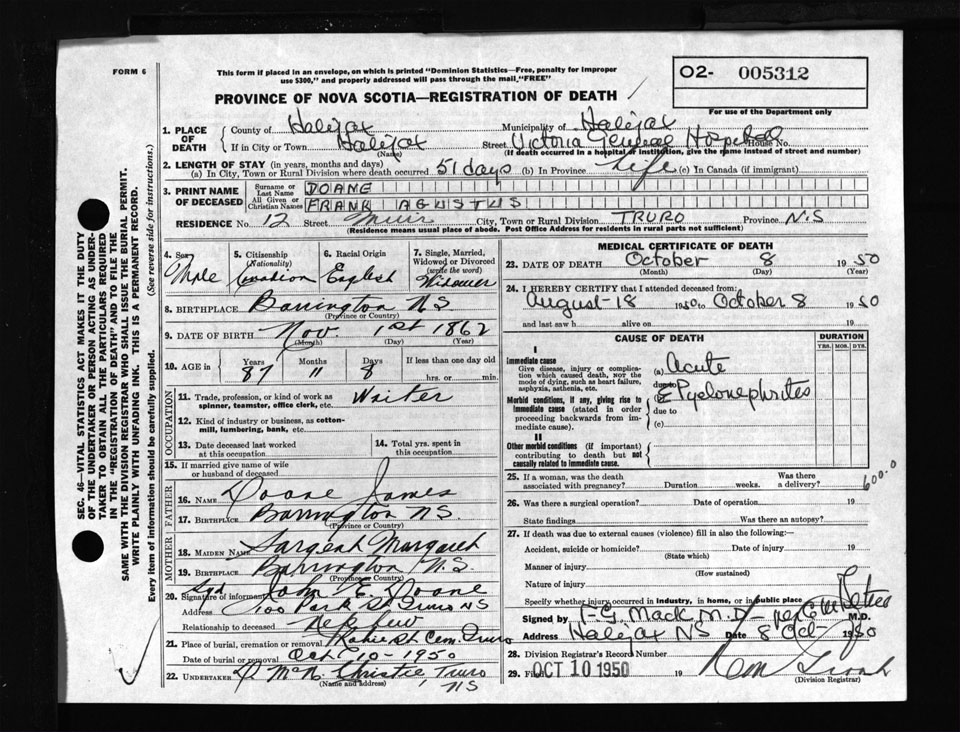 FORM 6
This form if placed in an envelope, on which is printed "Dominion Statistics—Free, penalty for improper
use $300," and properly addressed will pass through the mail, "FREE"
O2- 005312
For use of the Department only
PROVINCE OF NOVA SCOTIA—REGISTRATION OF DEATH
1. PLACE OF DEATH County of Halifax Municipality of Halifax
If in City or Town Halifax (Name) Street Victoria General Hospital House No.
(If death occurred in a hospital or institution, give the name instead of street and number)
2. LENGTH OF STAY (in years, months and days)
(a) In City, Town or Rural Division where death occurred 51 days (b) In Province Life (c) In Canada (if immigrant)
3. PRINT NAME OF DECEASED Surname or Last Name DOANE
All Given or Christian Names FRANK AGUSTUS
RESIDENCE No. 12 Street Muir City, Town or Rural Division TRURO Province N.S
(Residence means usual place of abode. Post Office Address for residents in rural parts not sufficient)
4. Sex Male
5. Citizenship (Nationality) Canadian
6. Racial Origin English
7. Single, Married, Widowed or Divorced (write the word) Widower
8. BIRTHPLACE Barrington N.S (Province or Country)
9. DATE OF BIRTH Nov. 1st 1862
(Month) (Day) (Year)
10. AGE in Years 87 Months 11 Days 8 If less than one day old hrs. or min.
OCCUPATION
11. Trade, profession, or kind of work as spinner, teamster, office clerk, etc. Waiter
12. Kind of industry or business, as cotton-mill, lumbering, bank, etc.
13. Date deceased last worked at this occupation
14. Total yrs. spent in this occupation
15. If married give name of wife or husband of deceased
FATHER
16. NAME Doane James
17. BIRTHPLACE Barrington N.S. (Province or Country)
MOTHER
18. MAIDEN NAME Sargent Margaret
19. BIRTHPLACE Barrington N.S. (Province or Country)
20. Signature of informant Sgd John E. Doane
Address 100 Park St Truro NS
Relationship to deceased Nephew
21. Place of burial, cremation or removal Robie St Cem. Truro
Date of burial or removal Oct 10-1950
22. UNDERTAKER Christie, Truro NS
(Name and address)
MEDICAL CERTIFICATE OF DEATH
23. DATE OF DEATH October 8 1950
(Month) (Day) (Year)
24. I HEREBY CERTIFY that I attended deceased from:
August-18 1950 to October 8 1950
and last saw h alive on 19
CAUSE OF DEATH
DURATION
YRS. MOS. DYS.
I
Immediate cause
Give disease, injury or complication which caused death, NOT the mode of dying, such as heart failure, asphyxia, asthenia, etc.
(a) Acute
due to
Pyelonephritis
Morbid conditions, if any, giving rise to immediate cause (stated in order proceeding backwards from immediate cause).
due to
(c)
II
Other morbid conditions (if important) contributing to death but not causally related to immediate cause.
600.0
25. If a woman, was the death associated with pregnancy? Duration weeks. Was there a delivery?
26. Was there a surgical operation? Date of operation 19
State findings Was there an autopsy?
27. If death was due to external causes (violence) fill in also the following:—
Accident, suicide or homicide? (State which) Date of injury 19
Manner of injury (How sustained)
Nature of injury
Specify whether injury occurred in Industry, in home, or in public place
Signed by Mack M.D M.D.
Address Halifax NS Date 8 Oct 1950
28. Division Registrar's Record Number
29. Filed OCT 10 1950 19
(Division Registrar)
SEC. 46—VITAL STATISTICS ACT MAKES IT THE DUTY
OF THE UNDERTAKER OR PERSON ACTING AS UNDER-
TAKER TO OBTAIN ALL THE PARTICULARS REQUIRED
IN THE "REGISTRATION OF DEATH" AND TO FILE THE
SAME WITH THE DIVISION REGISTRAR WHO SHALL ISSUE THE BURIAL PERMIT.
WRITE PLAINLY WITH UNFADING INK. THIS IS A PERMANENT RECORD.
Every item of information should be carefully supplied. (See reverse side for instructions.)